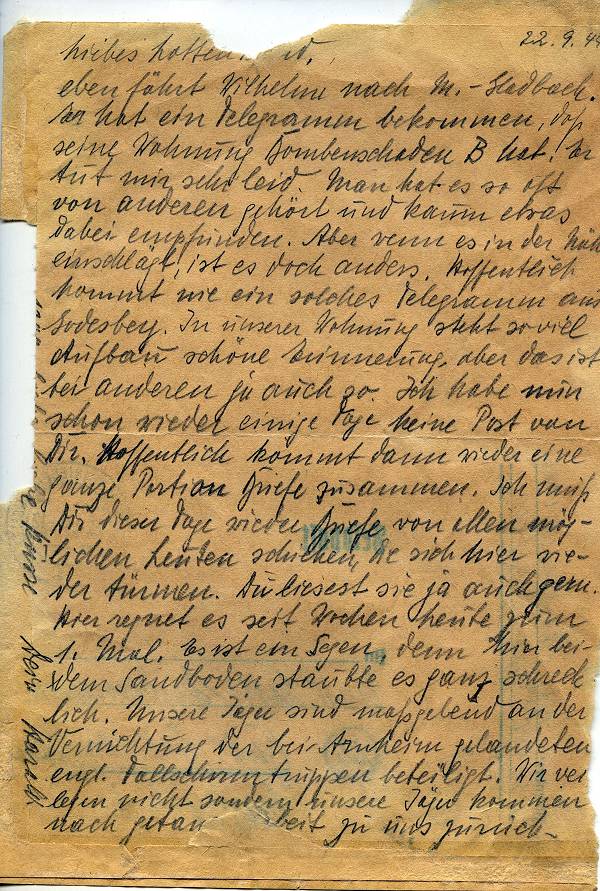 22.9.44
Liebes
eben fährt Wilhelm nach M.-Gladbach.
Er hat ein Telegramm bekommen, daß
seine Wohnung Bombenschaden B hat. Er
tut mir sehr leid. Man hat es so oft
von anderen gehört und kaum etwas
dabei empfunden. Aber wenn es in der Näh
einschlägt, ist es doch anders. Hoffentlich
kommt nie ein solches Telegramm aus
Godesberg. In unserer Wohnung steht so viel
Aufbau schöne Erinnerung, aber das ist
bei anderen ja auch so. Ich habe nun
schon wieder einige Tage keine Post von
Dir. Hoffentlich kommt dann wieder eine
ganze Portion Briefe zusammen. Ich muß
Dir dieser Tage wieder Briefe von allen mög-
lichen Leuten schicken, die sich hier wie-
der türmen. Du liesest sie ja auch gern.
Hier regnet es seit Wochen heute zum
1. Mal. Es ist ein Segen, denn hier bei
dem Sandboden staubte es ganz schreck
lich. Unsere Jäger sind maßgebend an der
Vernichtung der bei Arnheim gelandeten
engl. Fallschirmtruppen beteiligt. Wir ver
legen nicht sondern unsere Jäger kommen
nach getan beit zu uns zurück-
liebe Küsse Dein